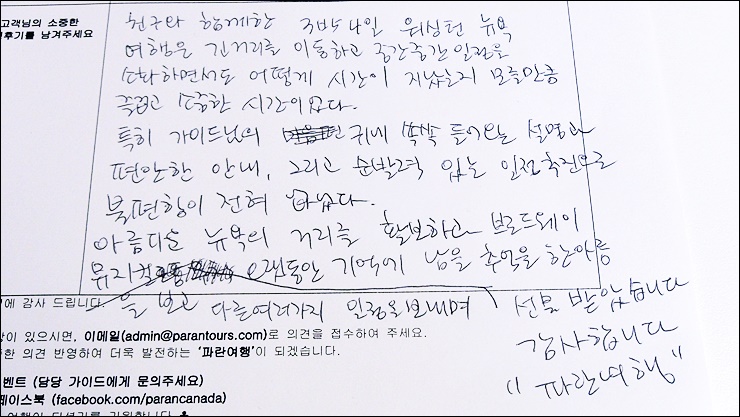 고객님의 소중한
후기를 남겨주세요
친구와 함께한 3박4일 워싱턴 뉴욕
여행은 긴거리를 이동하고 중간중간 일정을
소화하면서도 어떻게 시간이 지났는지 모를만큼
즐겁고 소중한 시간이었다.
특히 가이드님의 귀에 쏙쏙 들어오는 설명과
편안한 안내, 그리고 순발력 있는 일정추진으로
불편함이 전혀 없었다.
아름다운 뉴욕의 거리를 활보하고 브로드웨이
뮤지컬 오랫동안 기억에 남을 추억을 한아름
을 보고 다른여러가지 일정을보내며 선물 받았습니다
감사합니다
"파란여행"
에 감사 드립니다.
이 있으시면, 이메일(admin@parantours.com)로 의견을 접수하여 주세요.
한 의견 반영하여 더욱 발전하는 '파란여행'이 되겠습니다.
벤트 (담당 가이드에게 문의주세요)
페이스북 (facebook.com/parancanada)